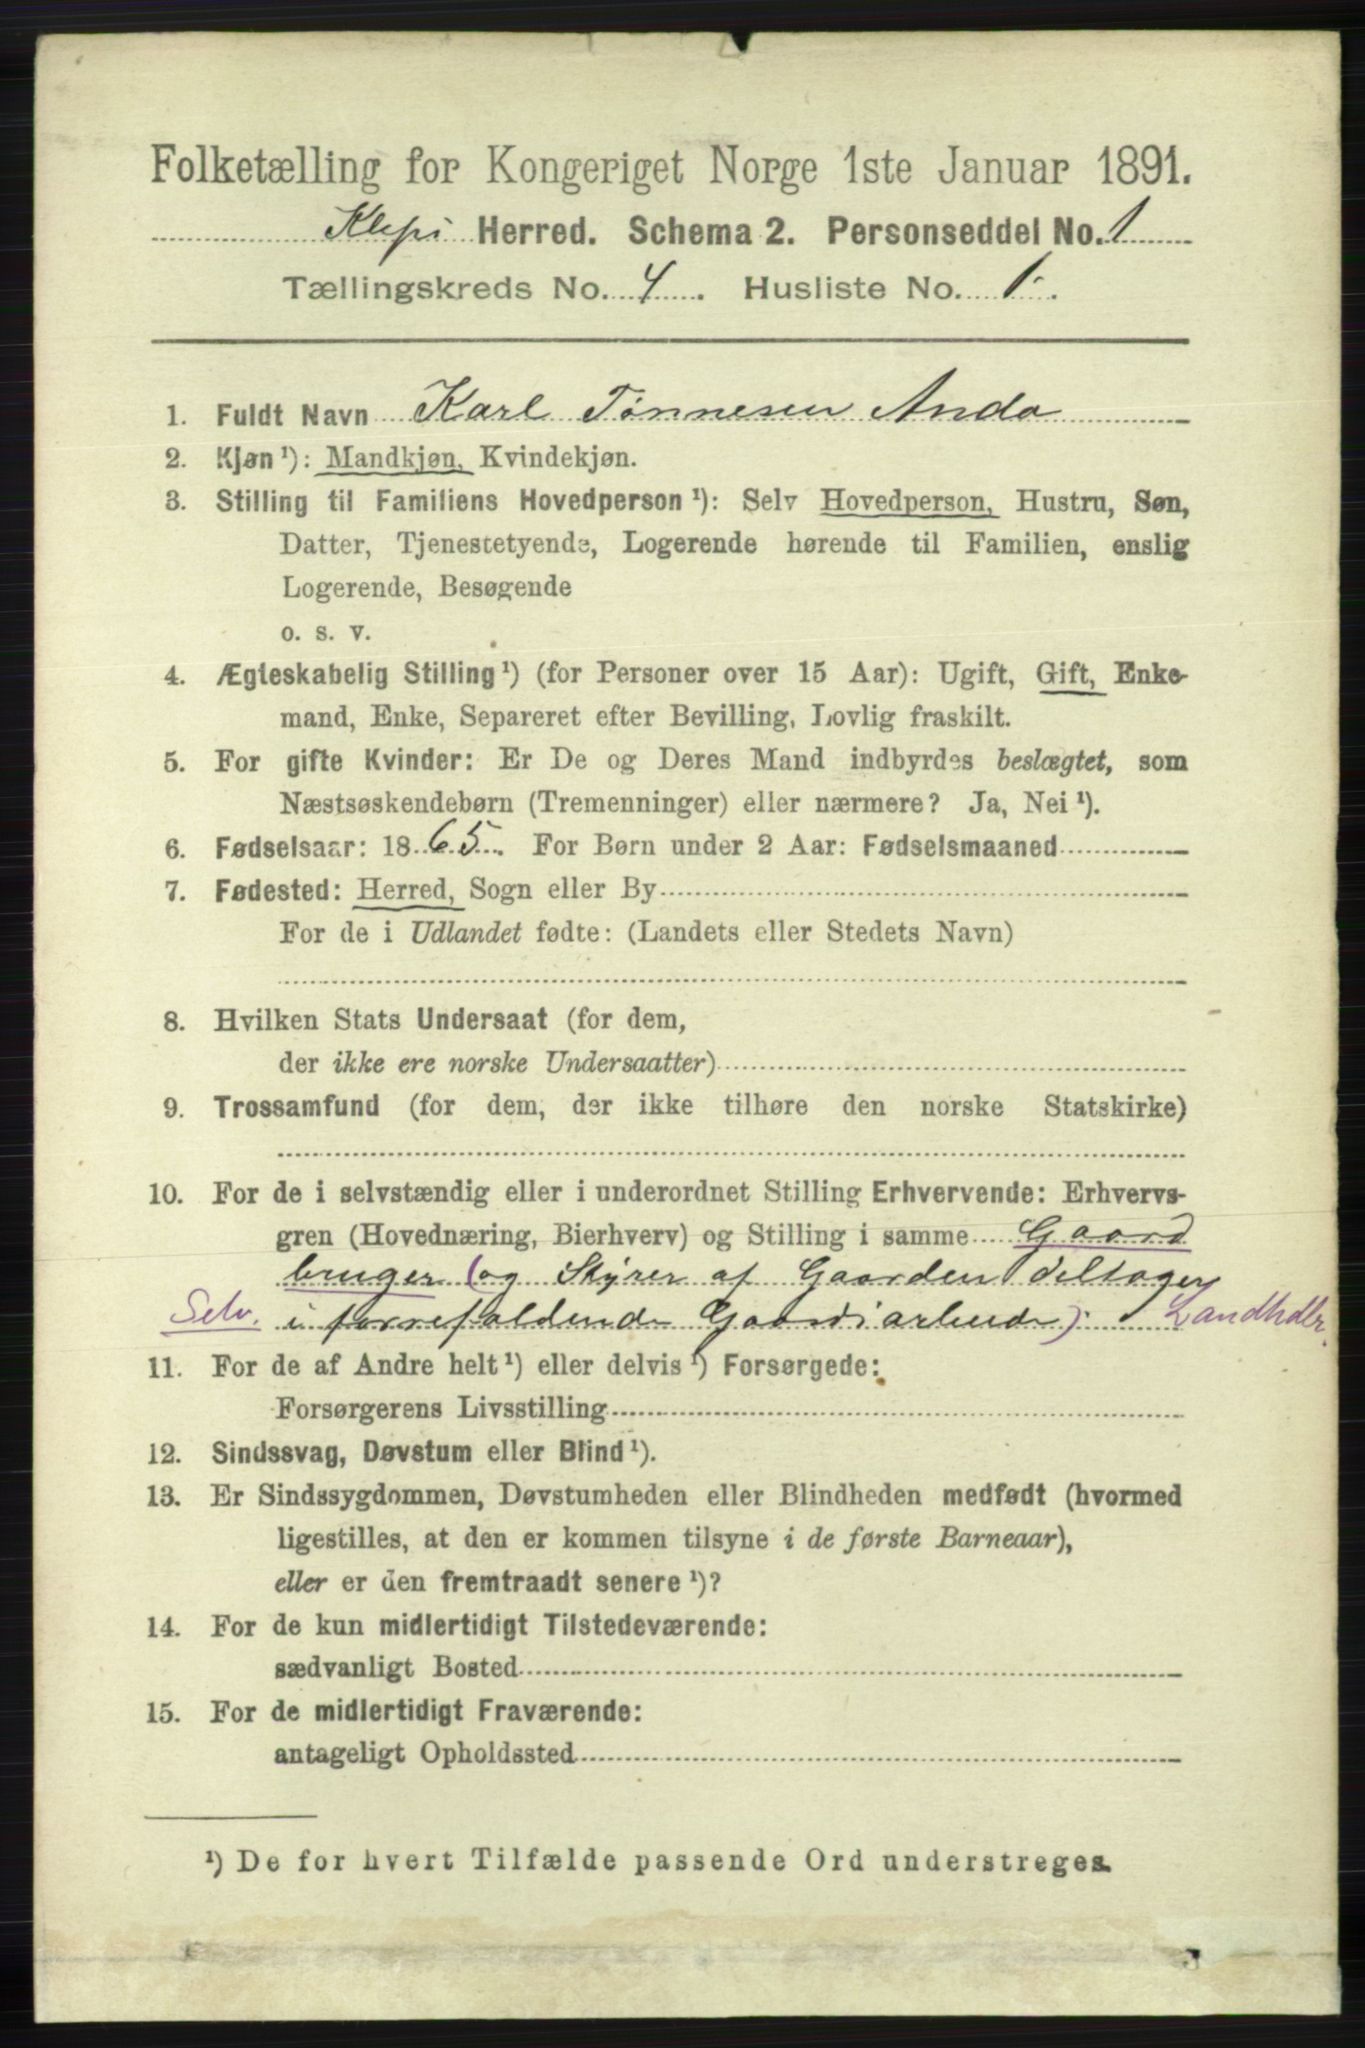 Folketælling for Kongeriget Norge 1ste Januar 1891.
Klepi Herred. Schema 2. Personseddel No. 1
Tællingskreds No. 4. Husliste No. 1.
1. Fuldt Navn Karl Tønnesen Anda
2. Kjøn ¹): Mandkjøn, Kvindekjøn.
3. Stilling til Familiens Hovedperson ¹): Selv Hovedperson, Hustru, Søn,
Datter, Tjenestetyende, Logerende hørende til Familien, enslig
Logerende, Besøgende
o. s. v.
4. Ægteskabelig Stilling ¹) (for Personer over 15 Aar): Ugift, Gift, Enke-
mand, Enke, Separeret efter Bevilling, Lovlig fraskilt.
5. For gifte Kvinder: Er De og Deres Mand indbyrdes beslægtet, som
Næstsøskendebørn (Tremenninger) eller nærmere? Ja, Nei ¹).
6. Fødselsaar: 1865. For Børn under 2 Aar: Fødselsmaaned
7. Fødested: Herred, Sogn eller By
For de i Udlandet fødte: (Landets eller Stedets Navn)
8. Hvilken Stats Undersaat (for dem,
der ikke ere norske Undersaatter)
9. Trossamfund (for dem, der ikke tilhøre den norske Statskirke)
10. For de i selvstændig eller i underordnet Stilling Erhvervende: Erhvervs-
gren (Hovednæring, Bierhverv) og Stilling i samme Gaard
bruger (og Styrer af Gaarden deltager
Selv. i forrefaldende Gaardiarbeide). Landhdlr.
11. For de af Andre helt ¹) eller delvis ¹) Forsørgede:
Forsørgerens Livsstilling
12. Sindssvag, Døvstum eller Blind ¹).
13. Er Sindssygdommen, Døvstumheden eller Blindheden medfødt (hvormed
ligestilles, at den er kommen tilsyne i de første Barneaar),
eller er den fremtraadt senere ¹)?
14. For de kun midlertidigt Tilstedeværende:
sædvanligt Bosted
15. For de midlertidigt Fraværende:
antageligt Opholdssted
¹) De for hvert Tilfælde passende Ord understreges.